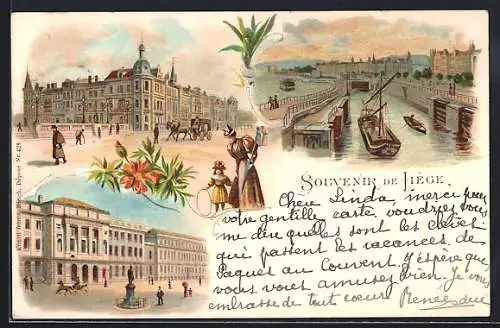 SOUVENIR DE LIÉGE.
Chère Linda, merci pour
votre gentille carte, voudrez vous
me dire quelles sont les élèves
qui passent les vacances de
Pâques au Couvent. J'espère que
vous vous amusez bien. Je vous
embrasse de tout cœur
Renée
Dépose Nr. 425